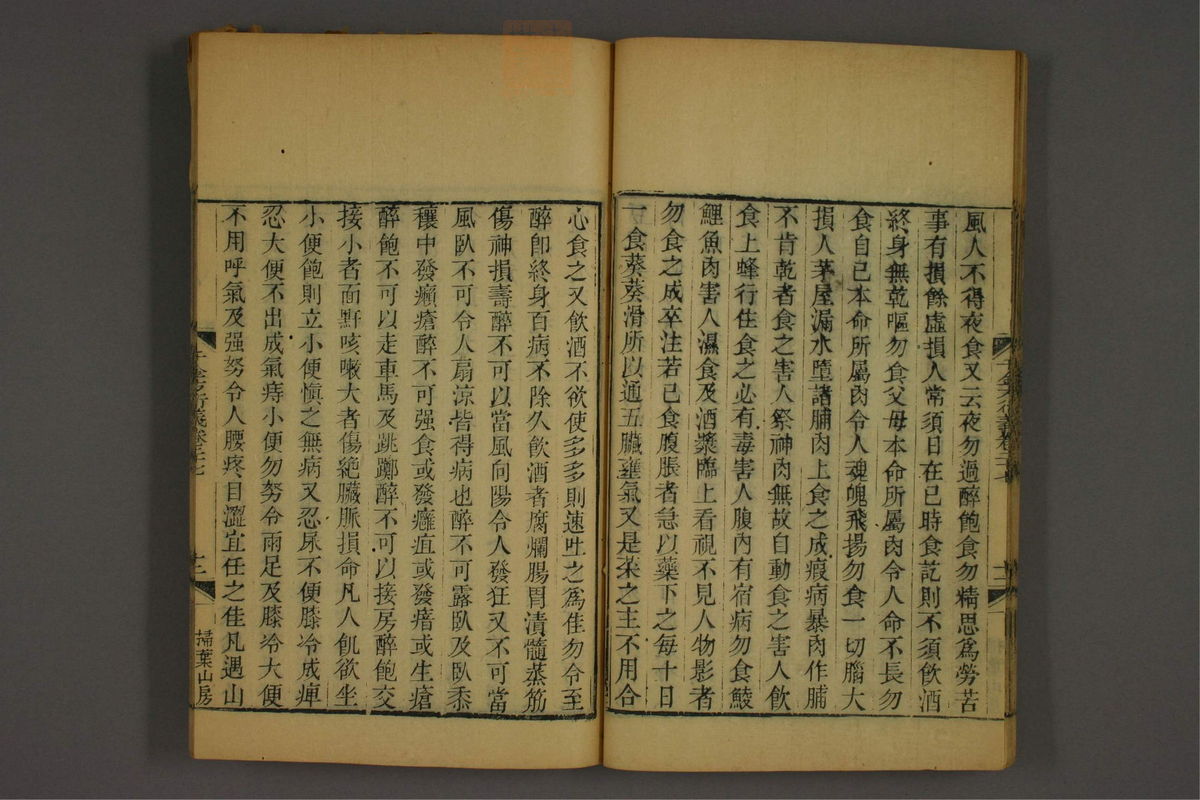 風人不得夜食又云夜勿過醉飽食勿精思爲勞苦
事有損餘虛損人常須日在巳時食訖則不須飲酒
終身無乾嘔勿食父母本命所屬肉令人命不長勿
食自己本命所屬肉令人魂魄飛揚勿食一切腦大
損人茅屋漏水墮諸脯肉上食之成瘕病暴肉作脯
不肯乾者食之害人祭神肉無故自動食之害人飲
食上蜂行住食之必有毒害人腹內有宿病勿食鯪
鯉魚肉害人濕食及酒漿臨上看視不見人物影者
勿食之成卒注若已食腹脹者急以藥下之每十日
一食葵葵滑所以通五臟壅氣又是菜之主不用合
心食之又飲酒不欲使多多則速吐之爲佳勿令至
醉卽終身百病不除久飲酒者腐爛腸胃漬髓蒸筋
傷神損壽醉不可以當風向陽令人發狂又不可當
風臥不可令人扇涼皆得病也醉不可露臥及臥黍
穰中發癩瘡醉不可强食或發癰疽或發瘖或生瘡
醉飽不可以走車馬及跳躑醉不可以接房醉飽交
接小者面䵟咳嗽大者傷絶臟脈損命凡人飢欲坐
小便飽則立小便愼之無病又忍尿不便膝冷成痺
忍大便不出成氣痔小便勿努令兩足及膝冷大便
不用呼氣及强努令人腰疼目澀宜任之佳凡遇山
掃葉山房